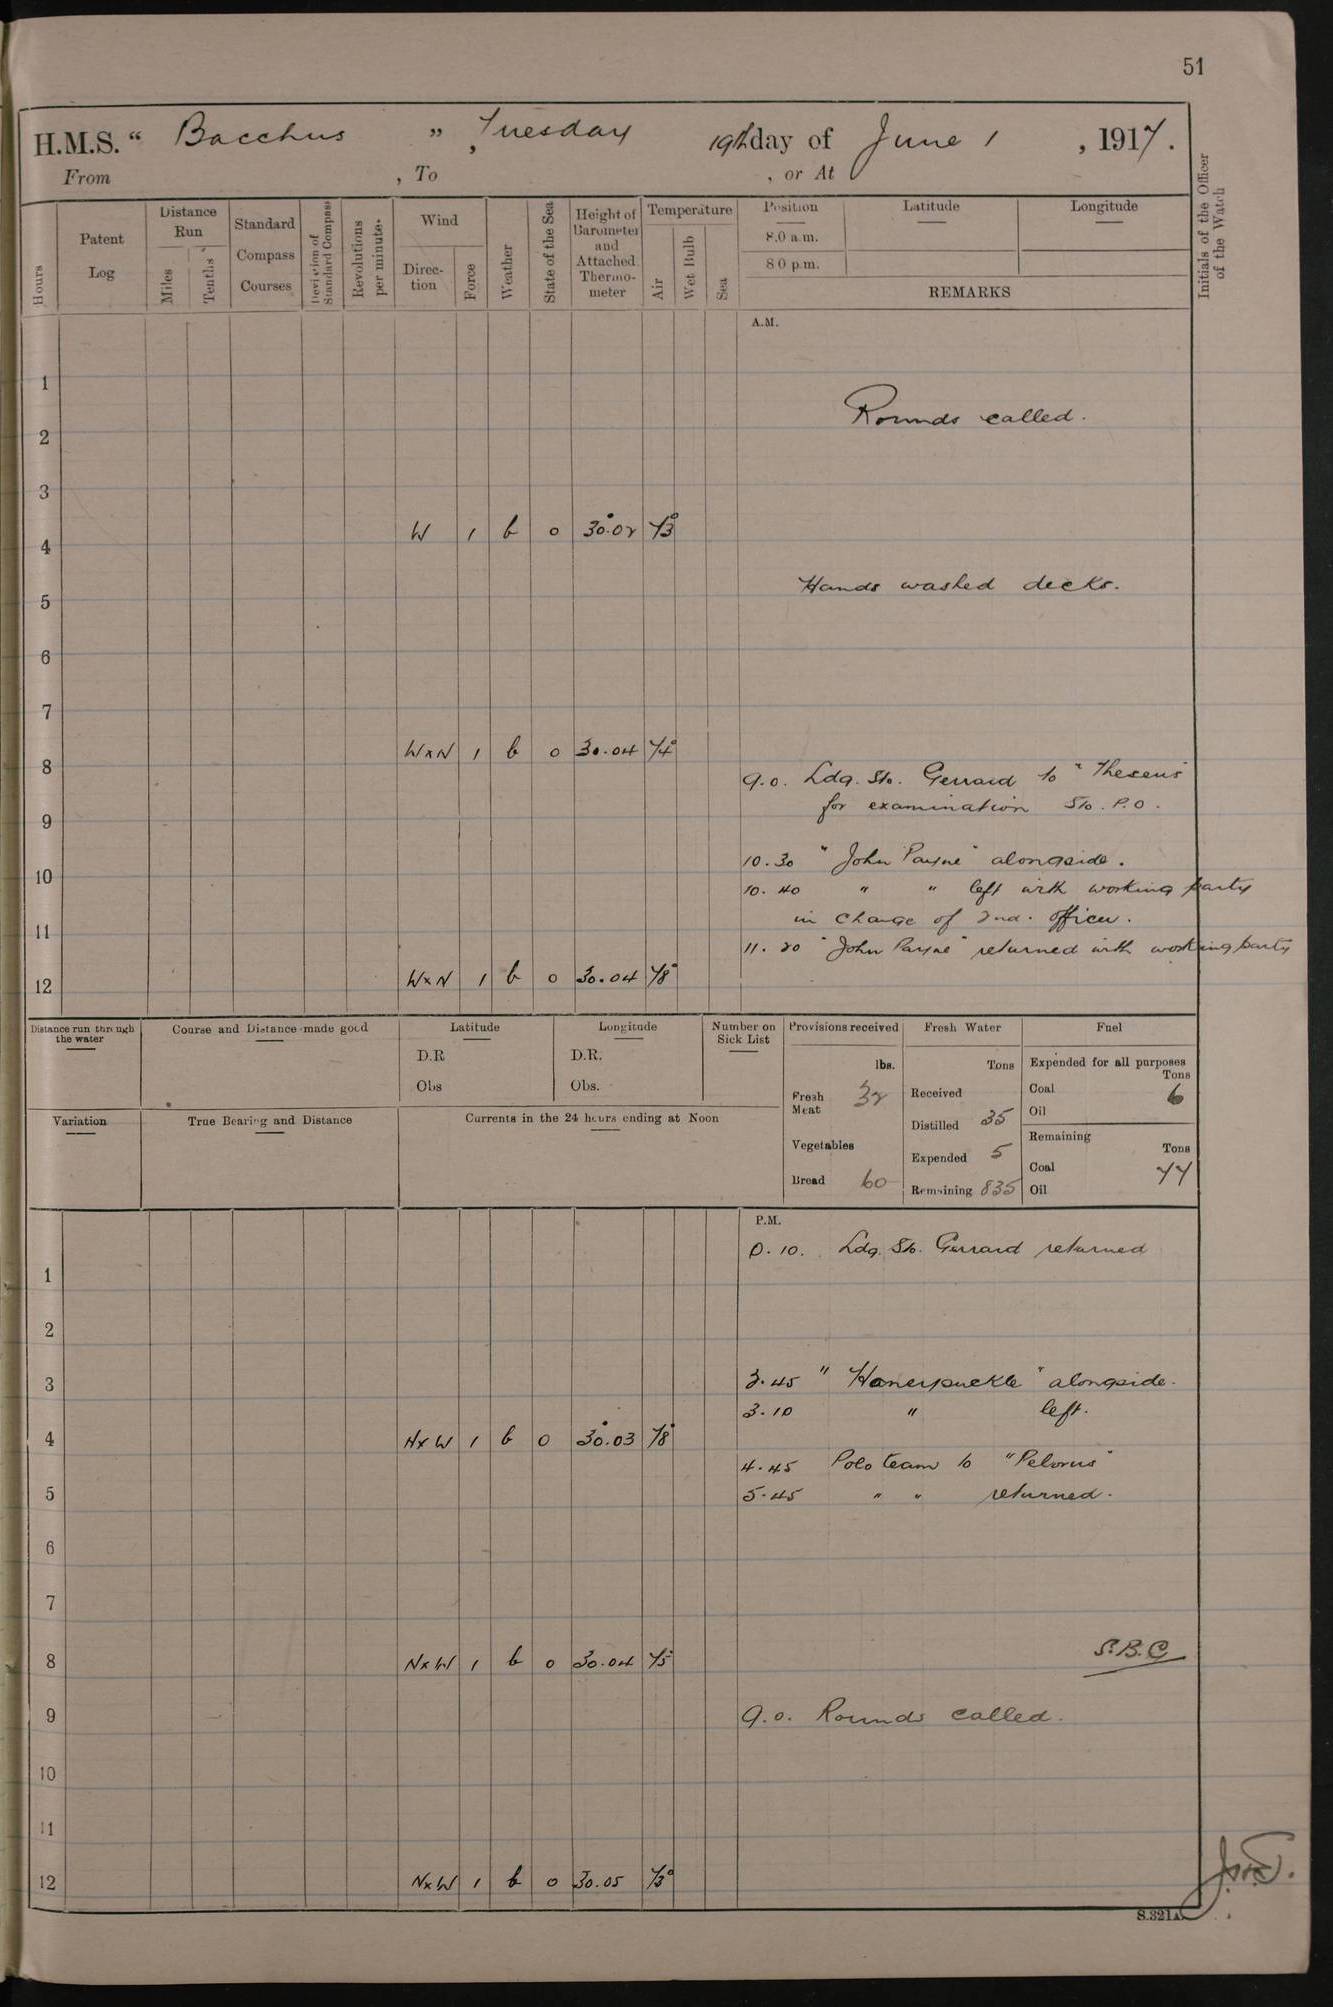 51
H.M.S. “ Bacchus ”, Tuesday 19th day of June, 1917.
From , To , or At
Hours
Patent Log
Distance Run
Miles
Tenths
Standard Compass Courses
Deviation of Standard Compass
Revolutions per minute.
Wind
Direc-tion
Force
Weather
State of the Sea
Height of Barometer and Attached Thermo-meter
Temperature
Air
Wet Bulb
Sea
Position
8.0 a.m.
8 0 p.m.
Latitude
Longitude
REMARKS
Initials of the Officer of the Watch
A.M.
1
Rounds called.
2
3
4 W 1 b 0 30.02 73°
Hands washed decks.
5
6
7
8 WxN 1 b 0 30.04 74°
9.0. Ldg. Sto. Gerrard to "Theseus"
for examination Sto. P.O.
9
10.30 "John Payne" alongside.
10
10.40 " " left with working party
in charge of 2nd. Officer.
11
11.20 "John Payne" returned with working party
12 WxN 1 b 0 30.04 78°
Distance run through the water
Course and Distance made good
Latitude
D.R
Obs
Longitude
D.R.
Obs.
Number on Sick List
Provisions received
lbs.
Fresh Meat 32
Vegetables
Bread 60
Fresh Water
Tons
Received
Distilled 35
Expended 5
Remaining 835
Fuel
Expended for all purposes
Tons
Coal 6
Oil
Remaining
Tons
Coal 77
Oil
Variation
True Bearing and Distance
Currents in the 24 hours ending at Noon
P.M.
0.10. Ldg. Sto. Gerrard returned
1
2
3
3.45 "Honeysuckle" alongside.
3.10 " left.
4 NxW 1 b 0 30.03 78°
4.45 Polo team to "Pelorus"
5
5.45 " " returned.
6
7
8 NxW 1 b 0 30.04 75°
S.B.C
9
9.0. Rounds called.
10
11
12 NxW 1 b 0 30.05 73°
S.321A.